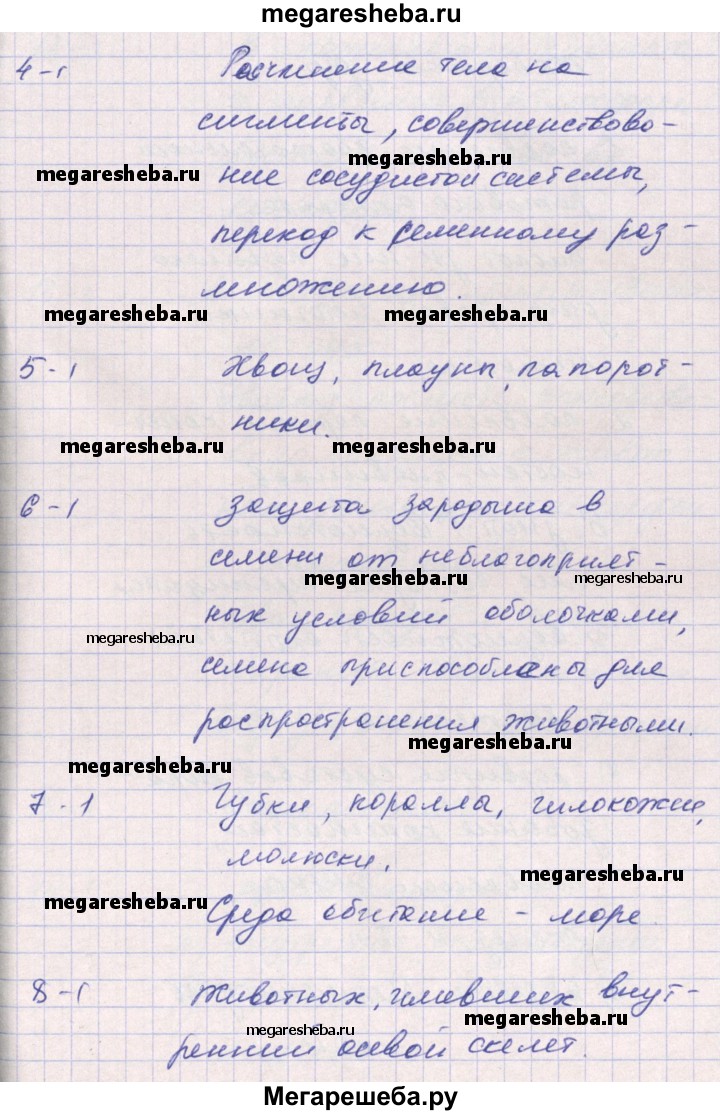 megaresheba.ru
4-г Расчленение тела на
сигменты, совершенствова-
megaresheba.ru
megaresheba.ru
ние сосудистой системы,
переход к семенному раз-
множению.
megaresheba.ru megaresheba.ru
5-1 Хвощ, плауны, папорот-
ники.
megaresheba.ru megaresheba.ru
6-1 Защита зародыша в
семени от неблагоприят-
megaresheba.ru megaresheba.ru
ных условий оболочками,
megaresheba.ru
семена приспособлены для
распространения животными.
megaresheba.ru
megaresheba.ru
7-1 Губки, кораллы, иглокожие,
молюски.
megaresheba.ru
megaresheba.ru
Среда обитание - море.
8-г Животных, имевших внут-
megaresheba.ru megaresheba.ru
ренний осевой скелет.
Мегарешеба.ру